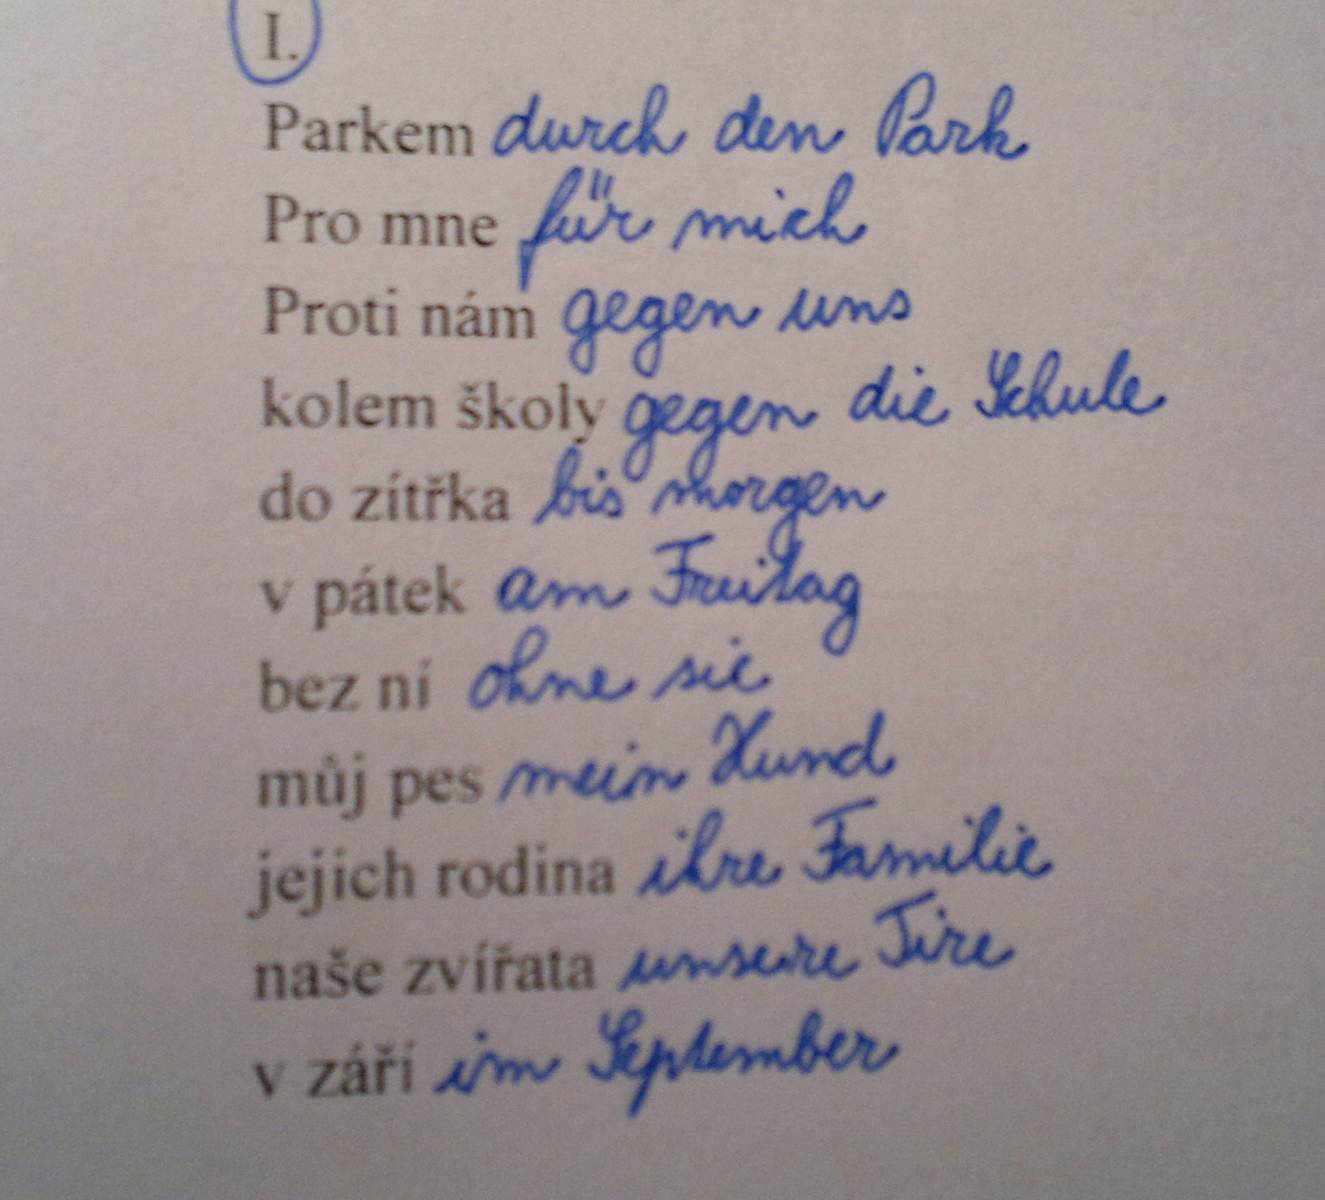 I.
Parkem durch den Park
Pro mne für mich
Proti nám gegen uns
kolem školy gegen die Schule
do zítřka bis morgen
v pátek am Freitag
bez ní ohne sie
můj pes mein Hund
jejich rodina ihre Familie
naše zvířata unsere Tire
v září im September